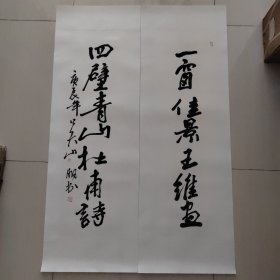 一窗佳景王維画
四壁青山杜甫詩
庚辰年